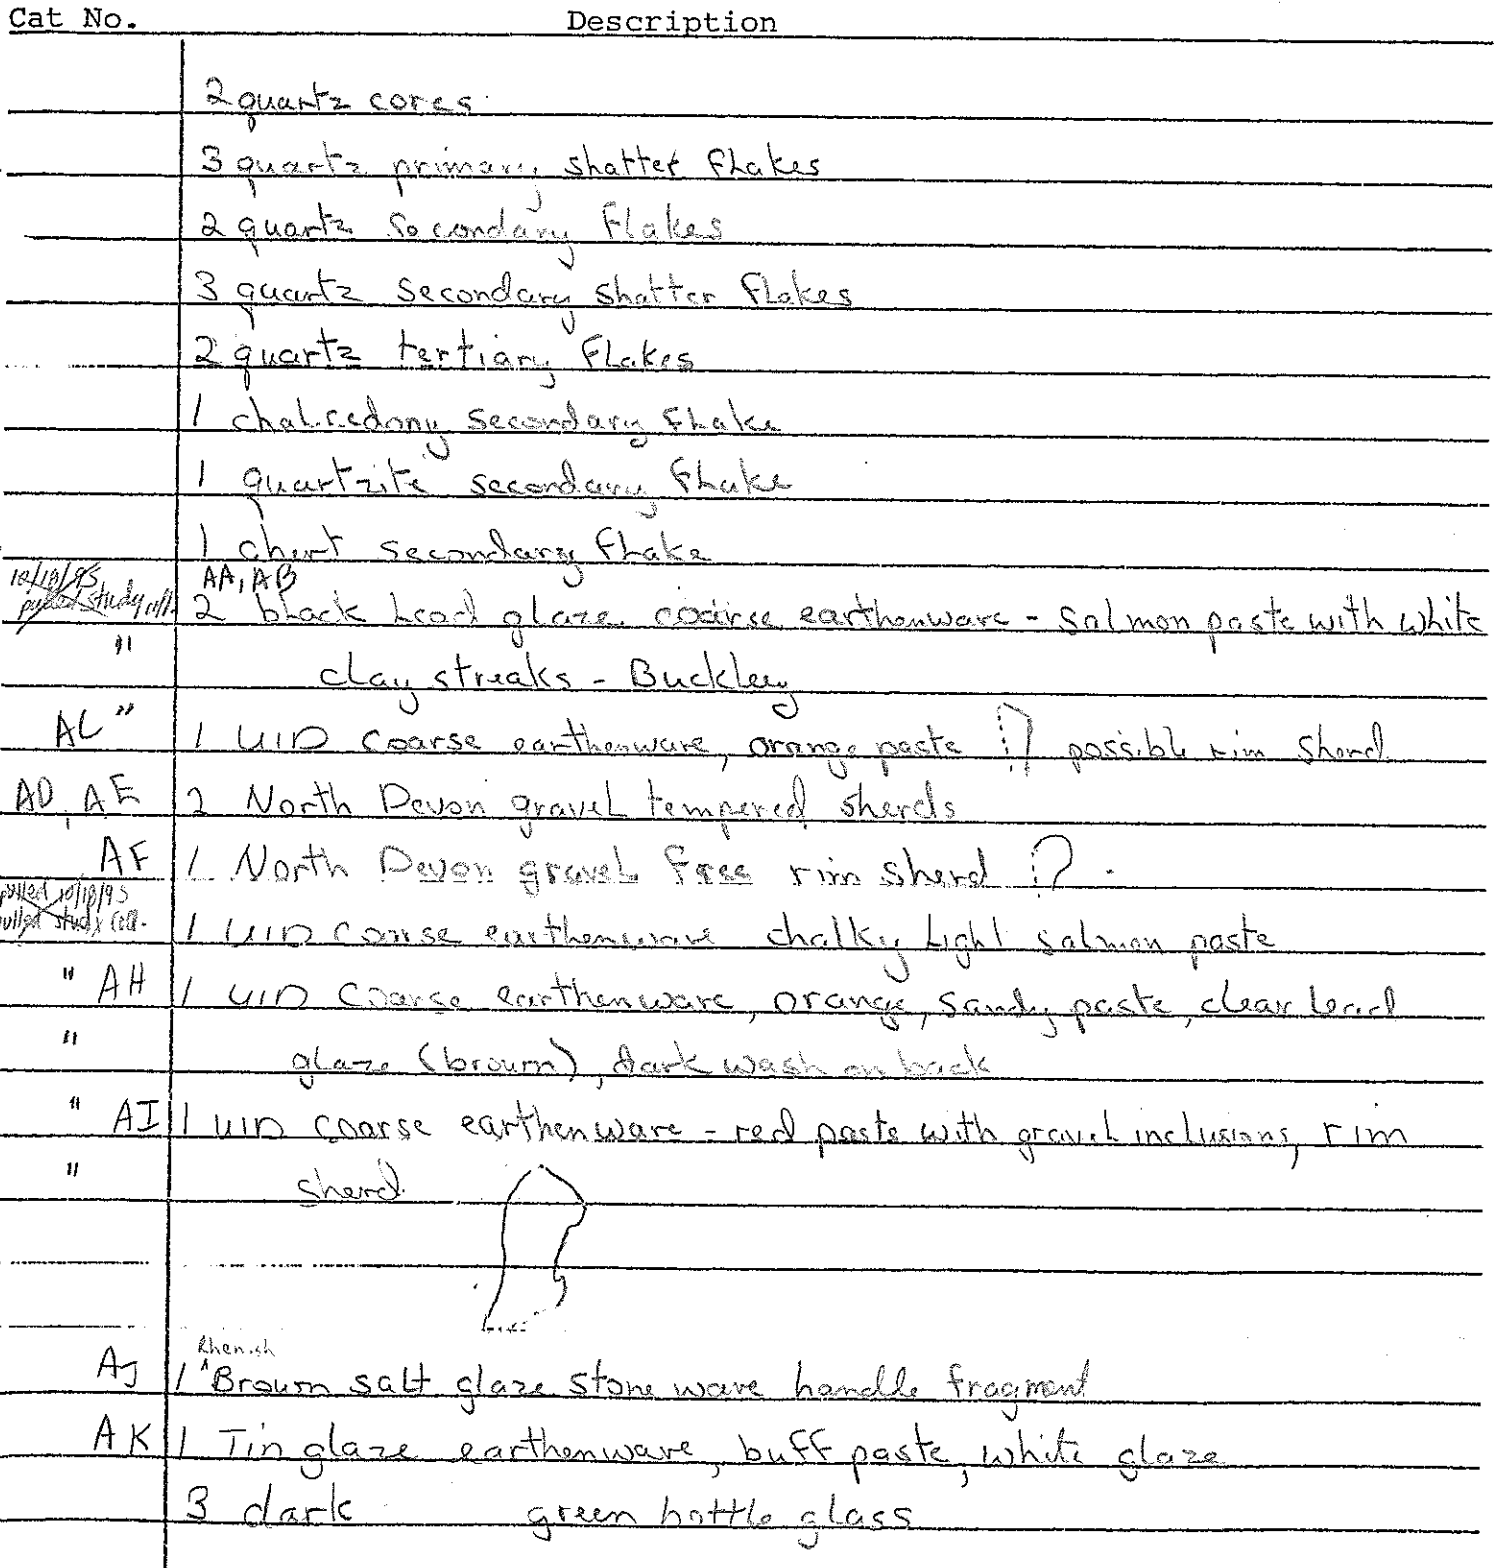 Cat No. Description
2 quartz cores
3 quartz primary shatter flakes
2 quartz secondary flakes
3 quartz secondary shatter flakes
2 quartz tertiary flakes
1 chalcedony secondary flake
1 quartzite secondary flake
1 chert secondary flake
10/18/95 AA, AB
pulled study coll. 2 black lead glaze coarse earthenware - salmon paste with white
" clay streaks - Buckley
AC " 1 UID coarse earthenware, orange paste possible rim sherd
AD, AE 2 North Devon gravel tempered sherds
AF 1 North Devon gravel free rim sherd
pulled 10/18/95
pulled study coll. 1 UID coarse earthenware chalky light salmon paste
" AH 1 UID coarse earthenware, orange, sandy paste, clear lead
" glaze (brown), dark wash on back
" AI 1 UID coarse earthenware - red paste with gravel inclusions, rim
" sherd
Rhenish
AJ 1 ^Brown salt glaze stoneware handle fragment
AK 1 Tin glaze earthenware, buff paste, white glaze
3 dark green bottle glass